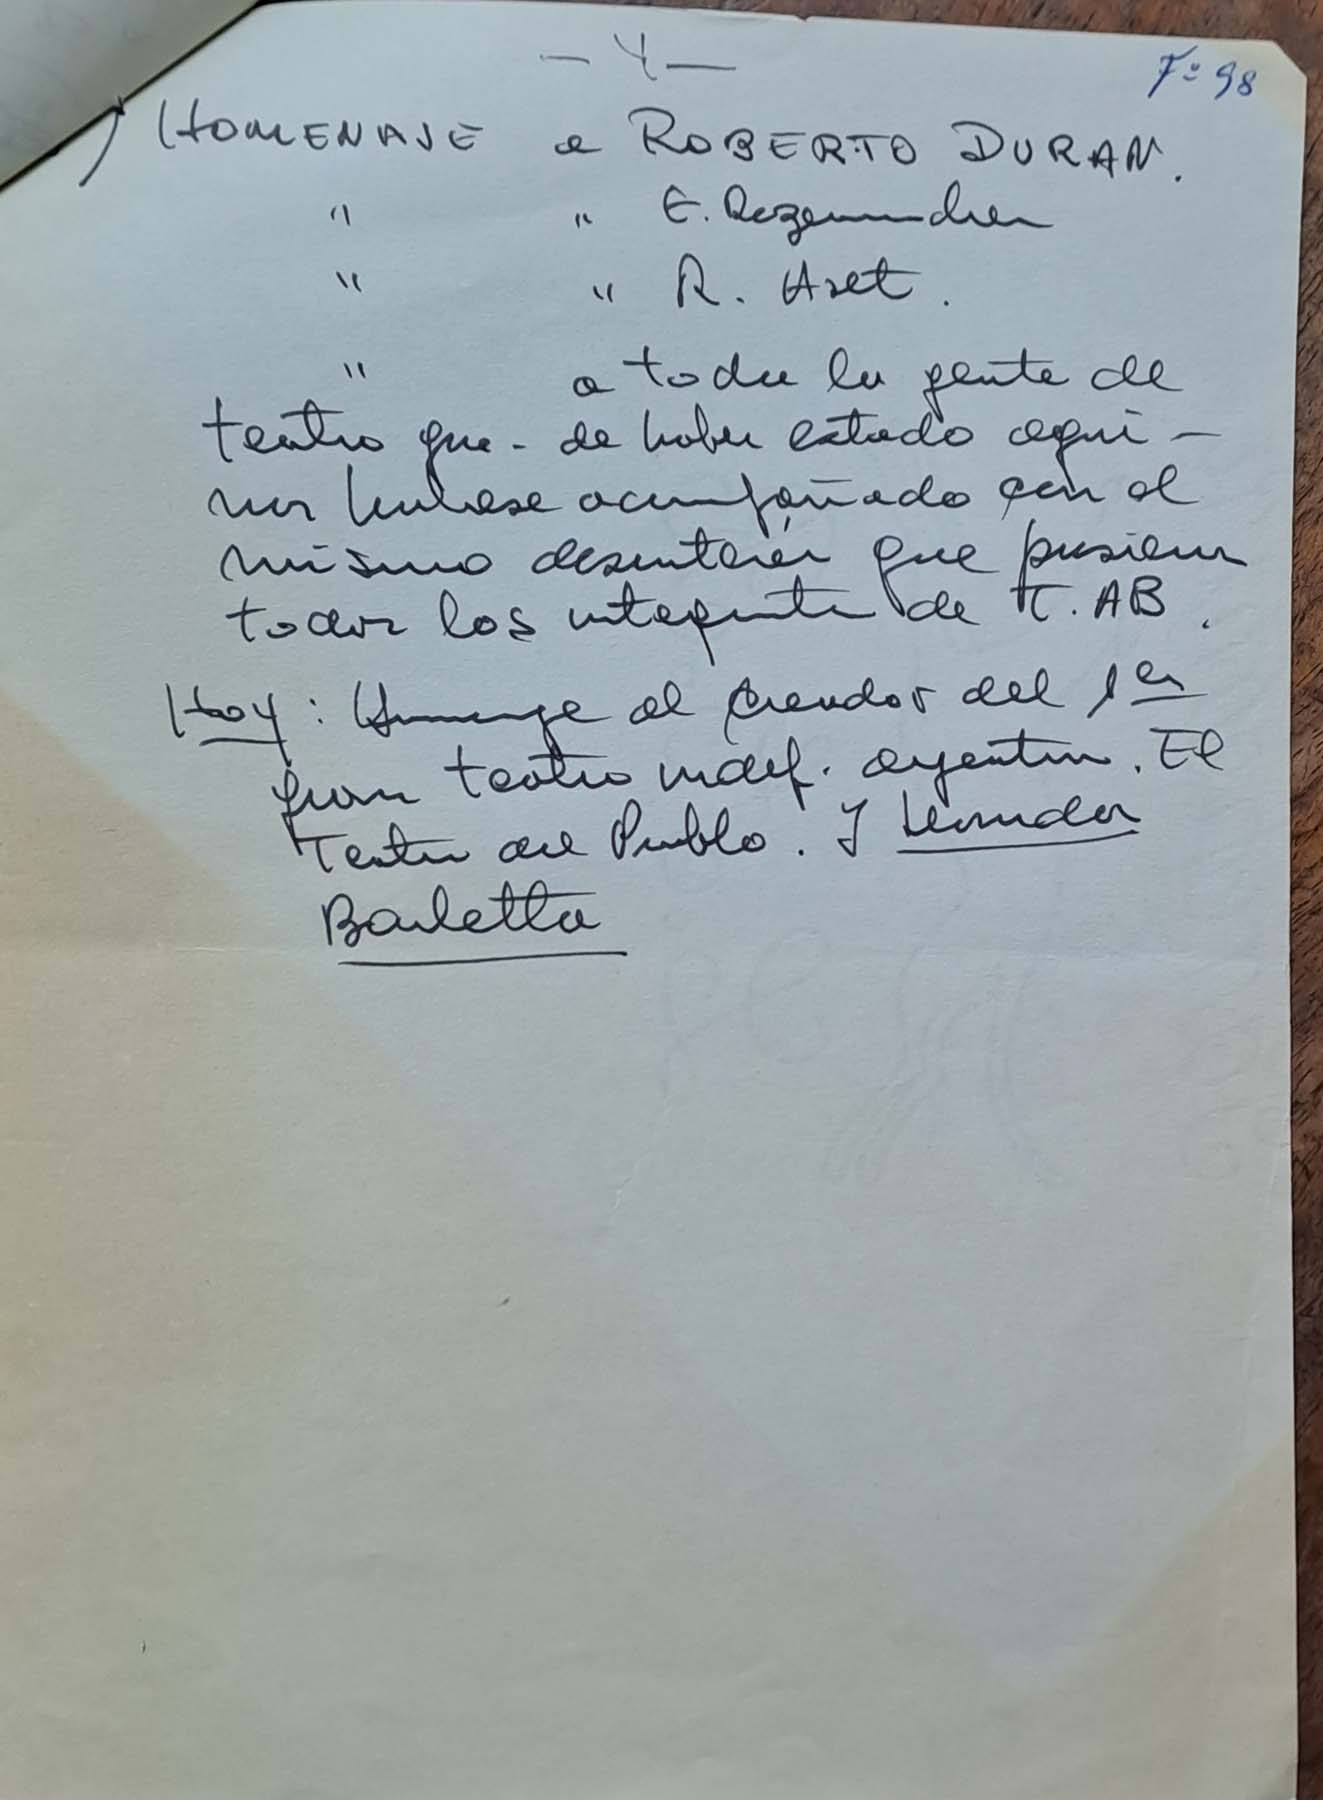 — 4 —
Fº 98
HOMENAJE a ROBERTO DURAN.
" " E.
" " R. Arlt.
" a toda la gente de
teatro que - de haber estado aquí -
nos hubiese acompañado con el
mismo desinterés que pusieron
todos los integrantes de T. AB.
Hoy: Homenaje al creador del 1er
gran teatro indep. argentino. El
Teatro del Pueblo. Y Leonidas
Barletta